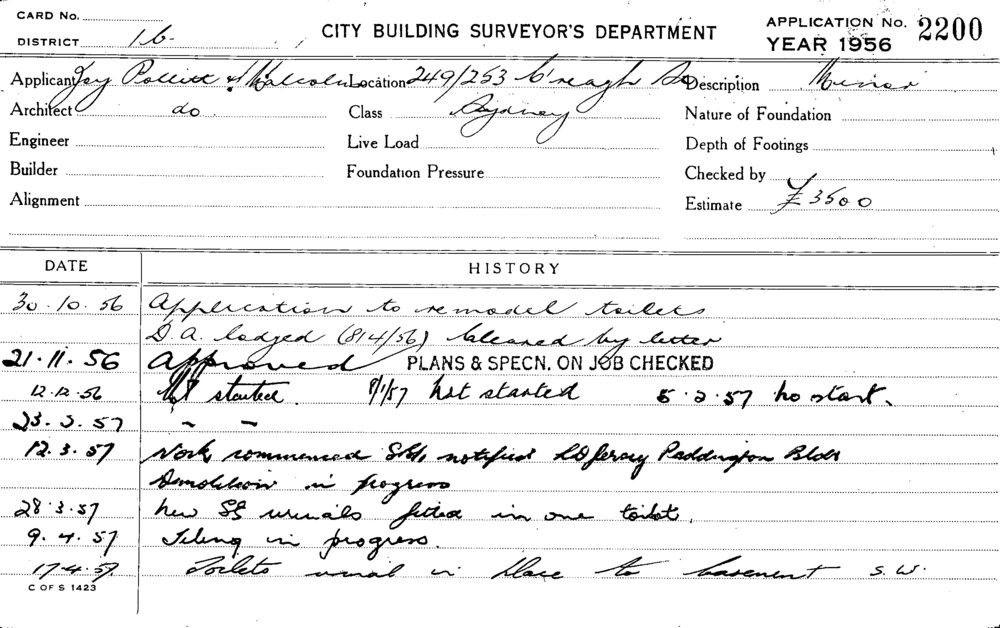 CARD No.
DISTRICT 16
CITY BUILDING SURVEYOR'S DEPARTMENT
APPLICATION No. 2200
YEAR 1956
Applicant Joy Pollitt & Malcolm Location 249/253 C'reagh St Description Minor
Architect do Class Sydney Nature of Foundation
Engineer Live Load Depth of Footings
Builder Foundation Pressure Checked by
Alignment Estimate £3500
DATE HISTORY
30.10.56 Application to remodel toilets
D.A. lodged (814/56) cleared by letter
21.11.56 Approved PLANS & SPECN. ON JOB CHECKED
12.12.56 Not started. 8/1/57 Not started 5.2.57 no start.
23.2.57 " "
12.3.57 Work commenced notified Paddington Bldr
Demolition in progress
28.3.57 New SS urinals fitted in one toilet.
9.4.57 Tiling in progress.
17.4.57 Toilets in place to basement S.W.
C OF S 1423